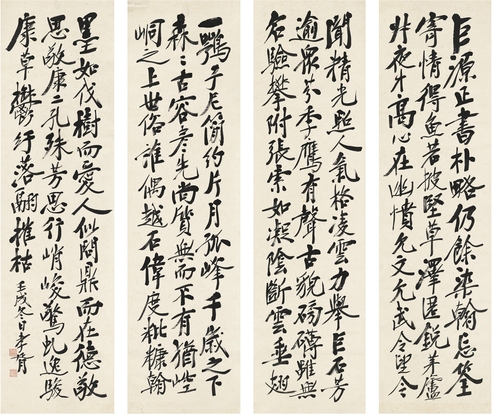 巨源正書朴略仍餘染翰忘筌
寄情得魚若披堅草澤匿銳茅廬
叔夜才高心在幽憤允文允武令望令
聞精光照人氣格凌雲力舉巨石芳
逾衆芬季鷹有聲古貌磅礴雖與
右驗攀附張索如凝陰斷雲垂翅
一鶚子尼簡約片月孤峰千歲之下
森〻古容彥先尚質與而不有猶崆
峒之上世俗誰偶越石偉度粃糠翰
墨如伐樹而愛人似問鼎而在德敬
思敬康二孔殊芳思行峭峻驚虬逸駿
康草鬱紆落翮摧枯 壬戌冬日孝胥